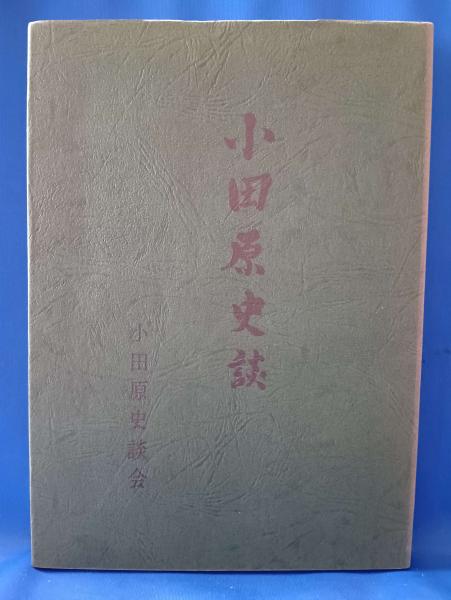 小田原史談
小田原史談会